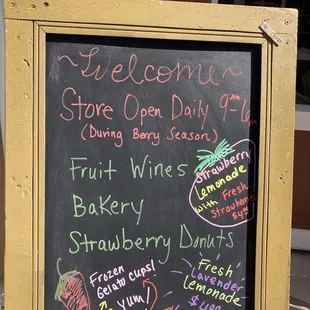 ~Welcome~
Store Open Daily 9AM-6
(During Berry Season)
Fruit Wines
Bakery
Strawberry Donuts
Strawberry
Lemonade
with Fresh
Strawberries
Frozen
Gelato Cups!
Yum!
Fresh
Lavender
Lemonade